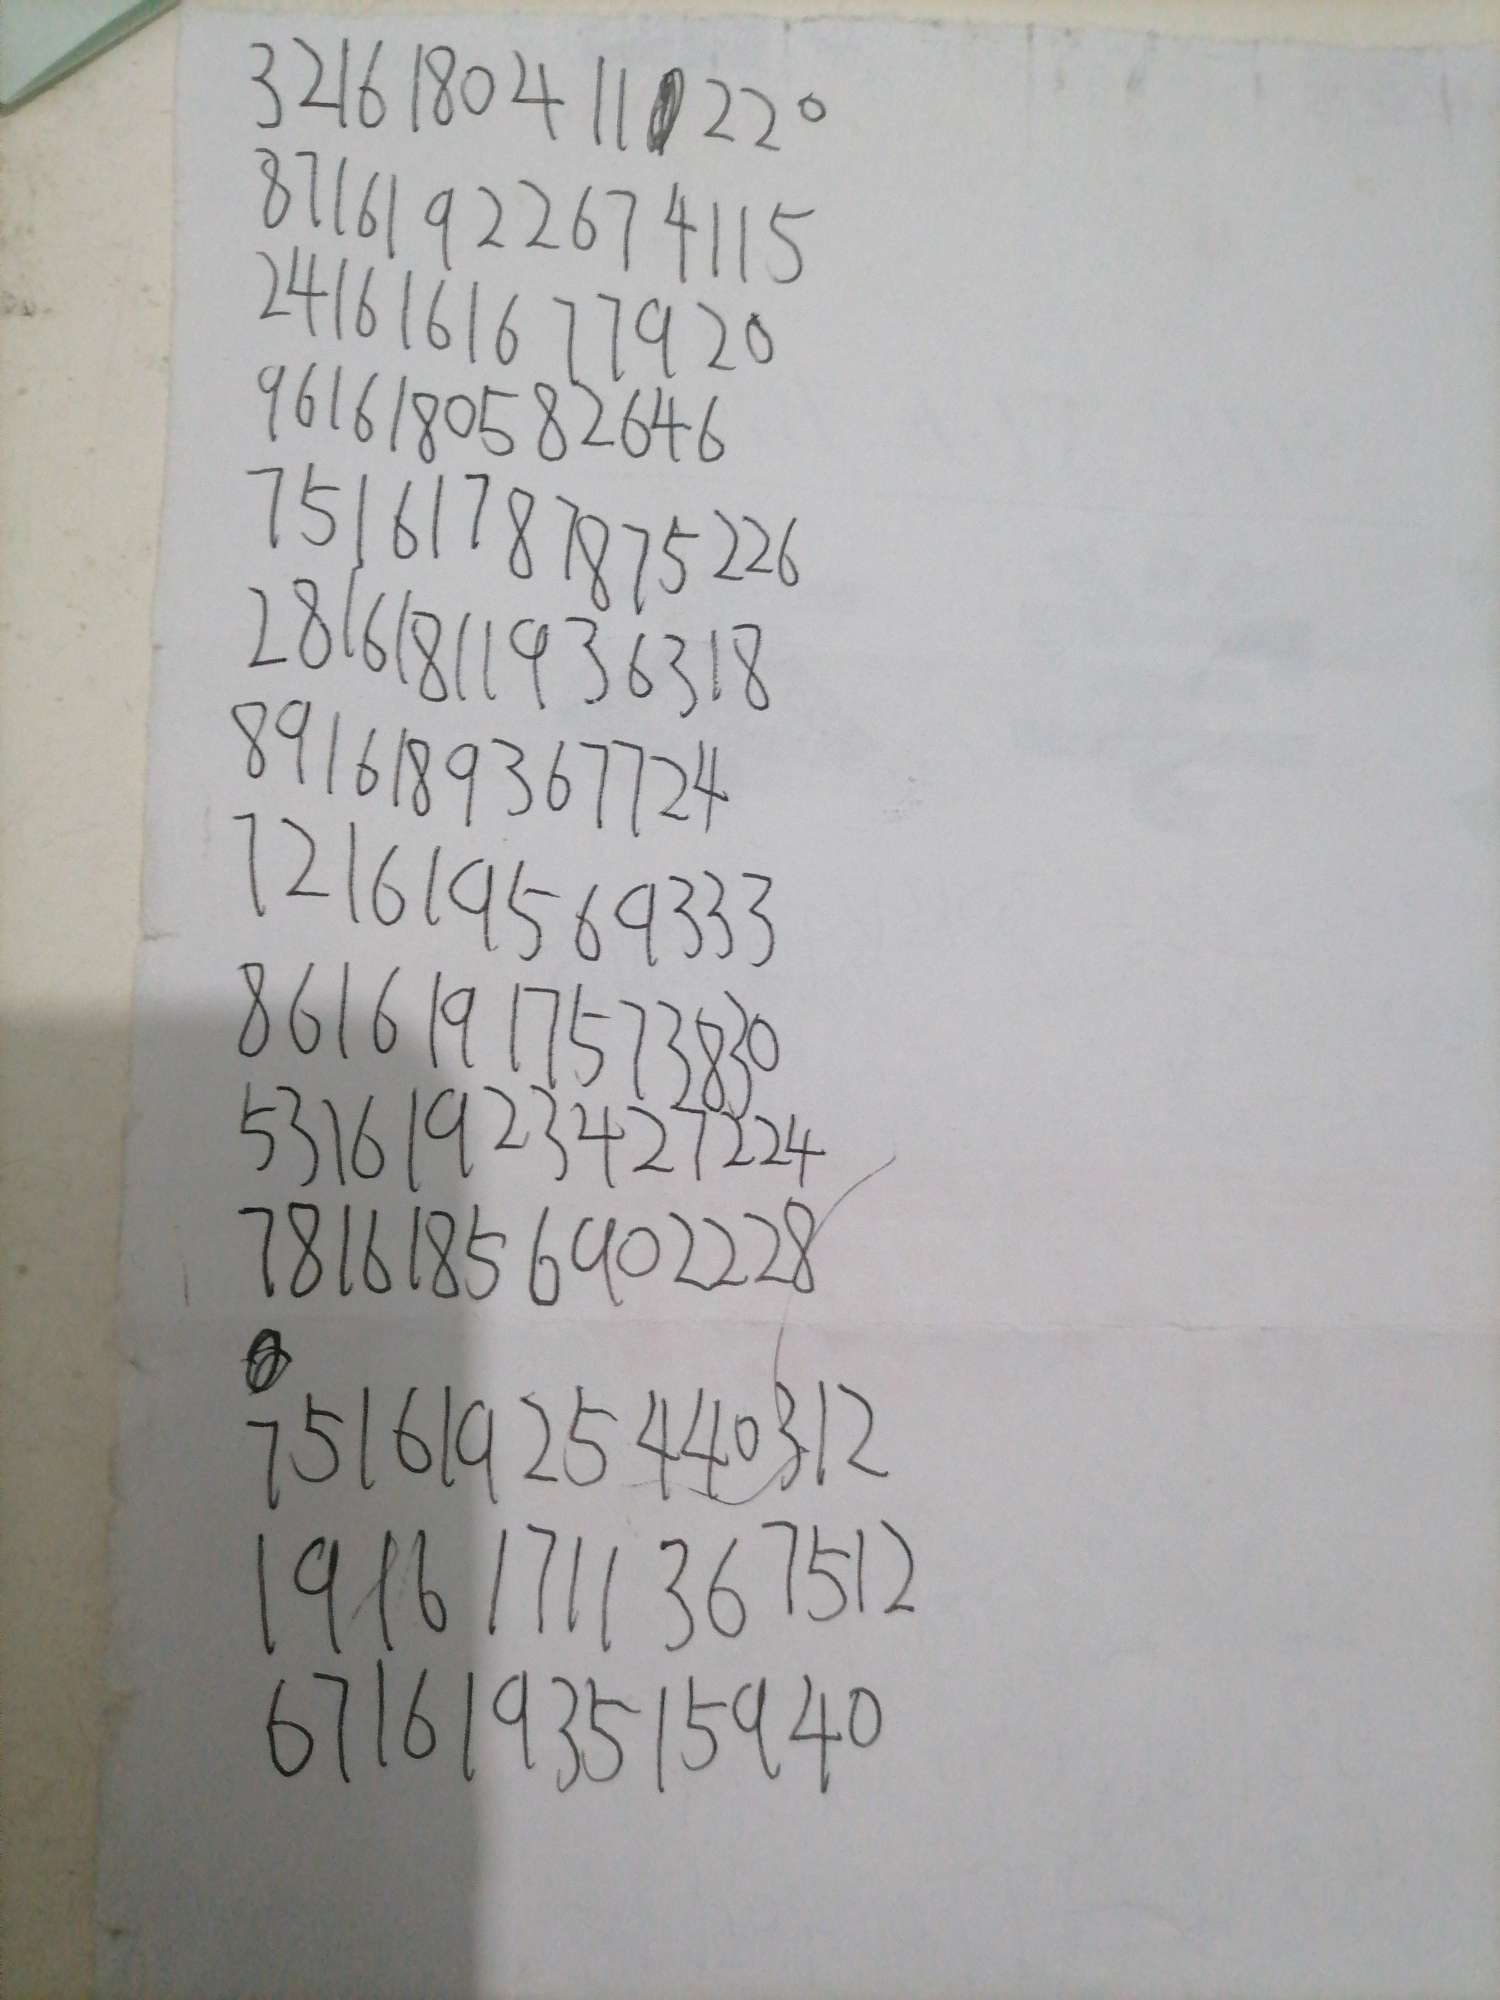 3216180411220
87161922674115
2416161677920
9616180582646
75161787875226
28161811936318
8916189367724
721619569333
86161917573830
53161923427224
78161856902228
75161925440312
19161711367512
6716193515940